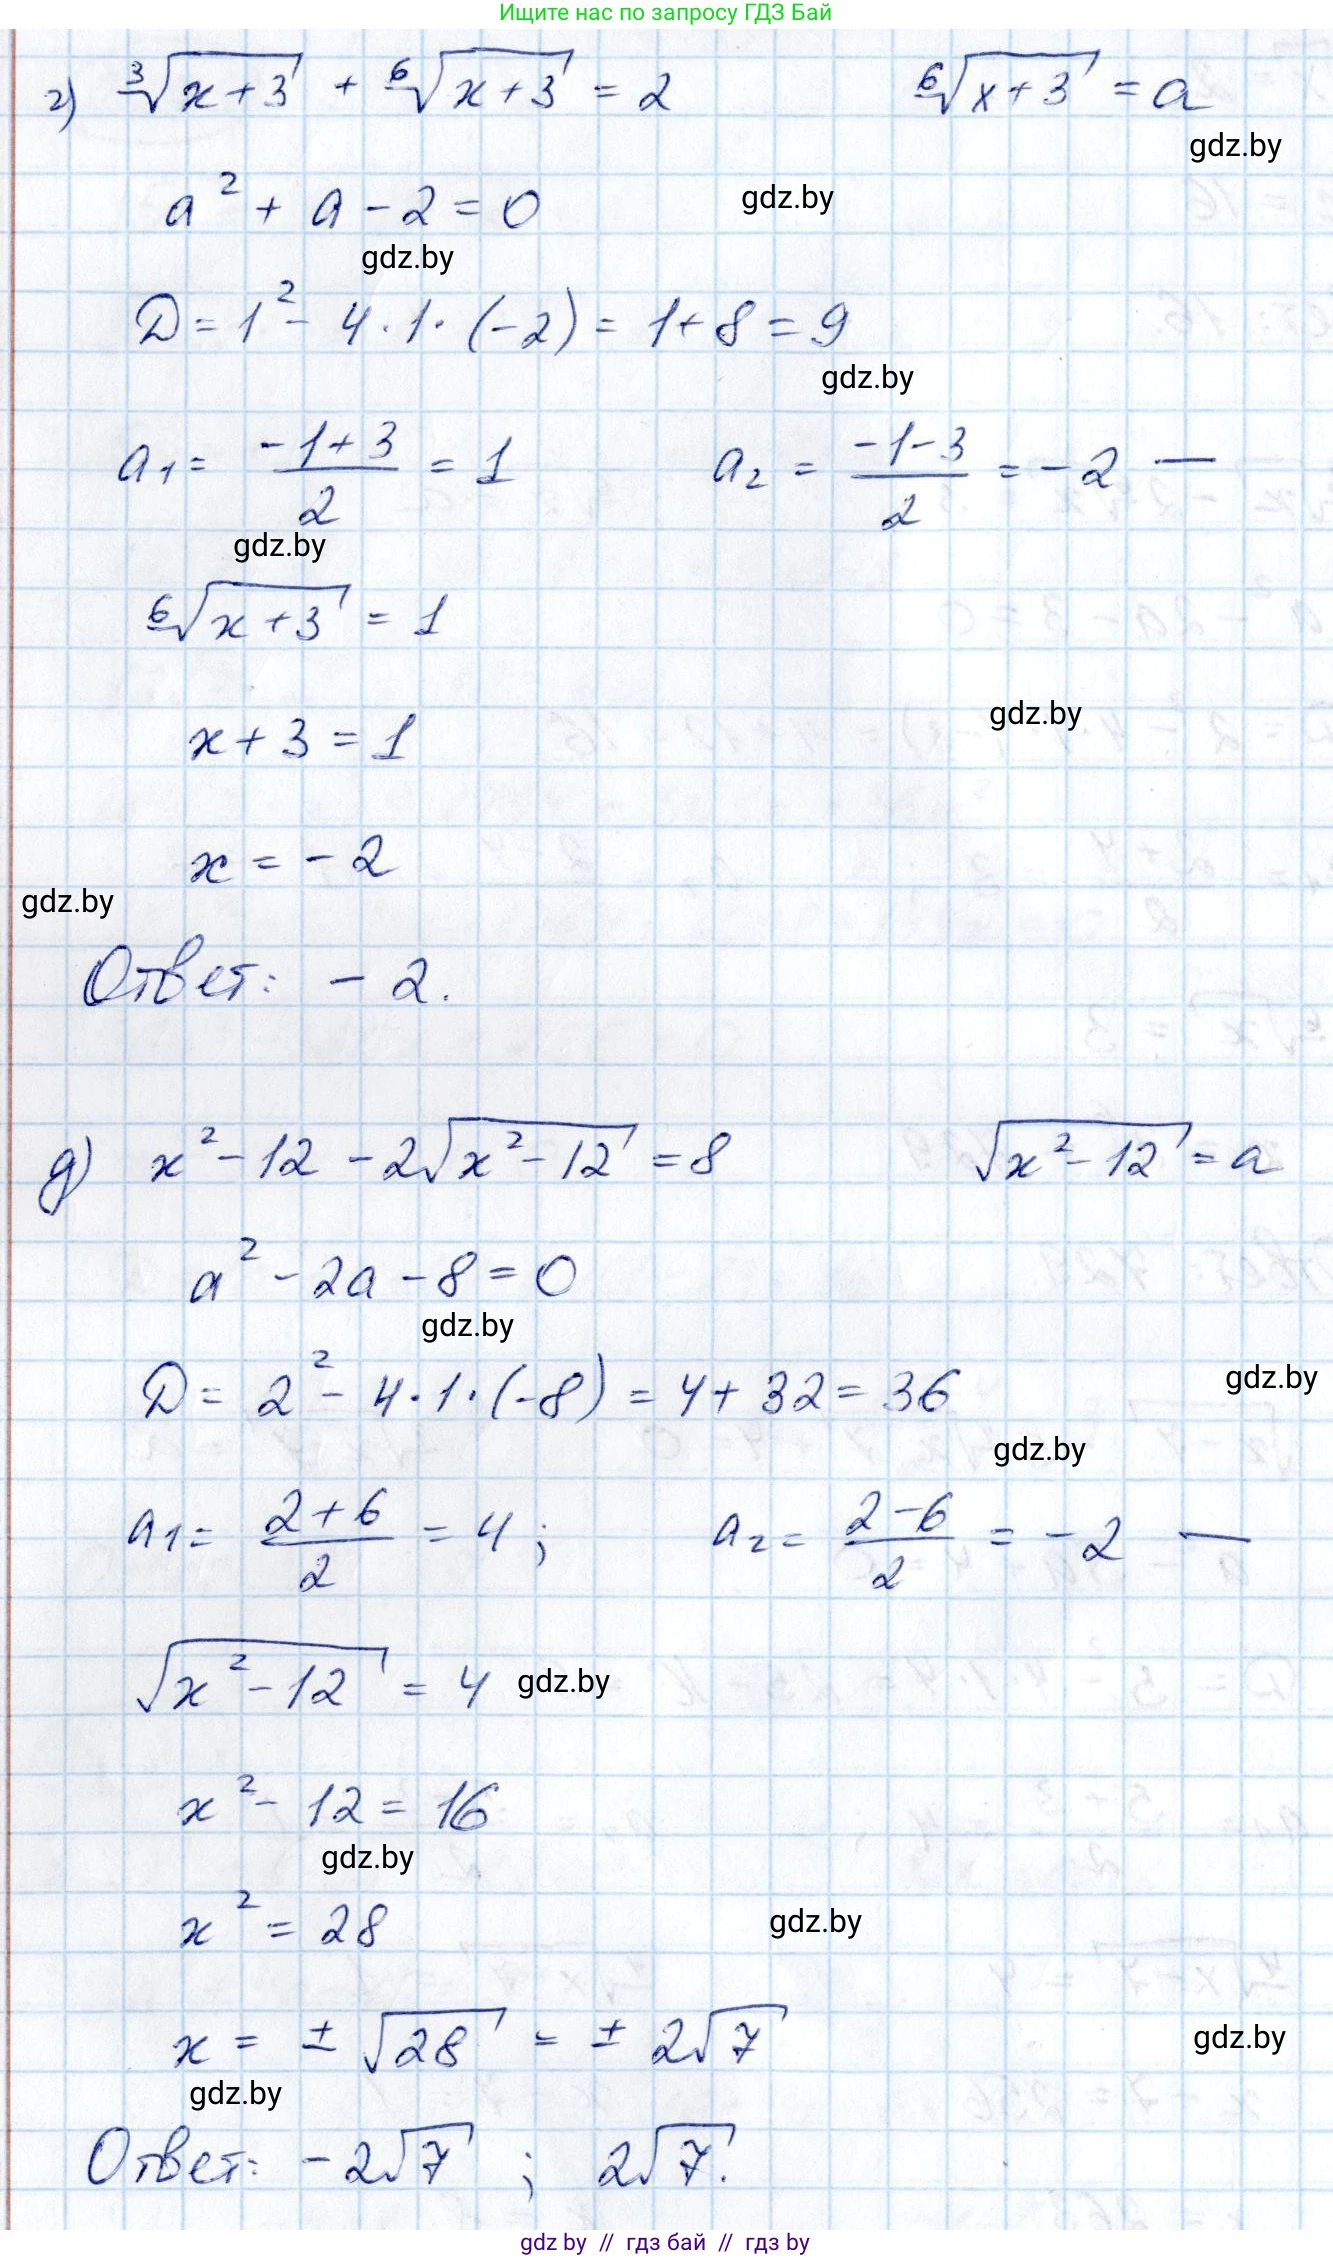 Ищите нас по запросу ГДЗ Бай
г) ∛(x+3) + ⁶√(x+3) = 2     ⁶√(x+3) = a
gdz.by
gdz.by
a² + a - 2 = 0
gdz.by
D = 1² - 4·1·(-2) = 1+8 = 9
gdz.by
a₁ = (-1+3)/2 = 1     a₂ = (-1-3)/2 = -2 —
gdz.by
⁶√(x+3) = 1
x+3 = 1
gdz.by
x = -2
gdz.by
Ответ: -2.
д) x² - 12 - 2√(x² - 12) = 8     √(x² - 12) = a
a² - 2a - 8 = 0
gdz.by
D = 2² - 4·1·(-8) = 4 + 32 = 36
gdz.by
gdz.by
a₁ = (2+6)/2 = 4;     a₂ = (2-6)/2 = -2 —
√(x² - 12) = 4
gdz.by
x² - 12 = 16
gdz.by
x² = 28
gdz.by
x = ± √28 = ± 2√7
gdz.by
gdz.by
Ответ: -2√7 ; 2√7.
gdz by // гдз бай // гдз by